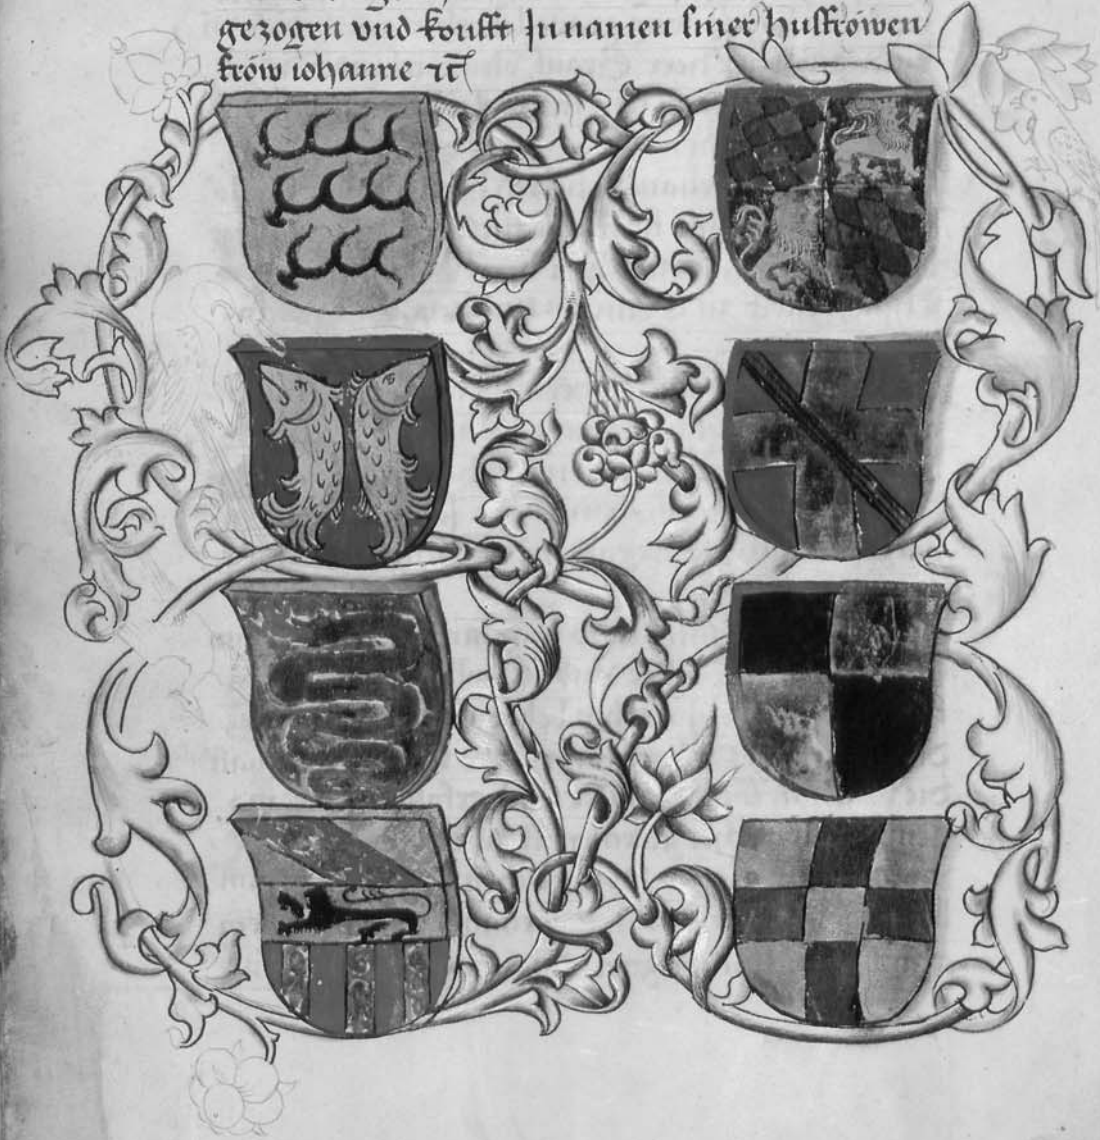 gezogen vnd koufft In namen siner husfröwen
fröw iohanne ⁊c̃